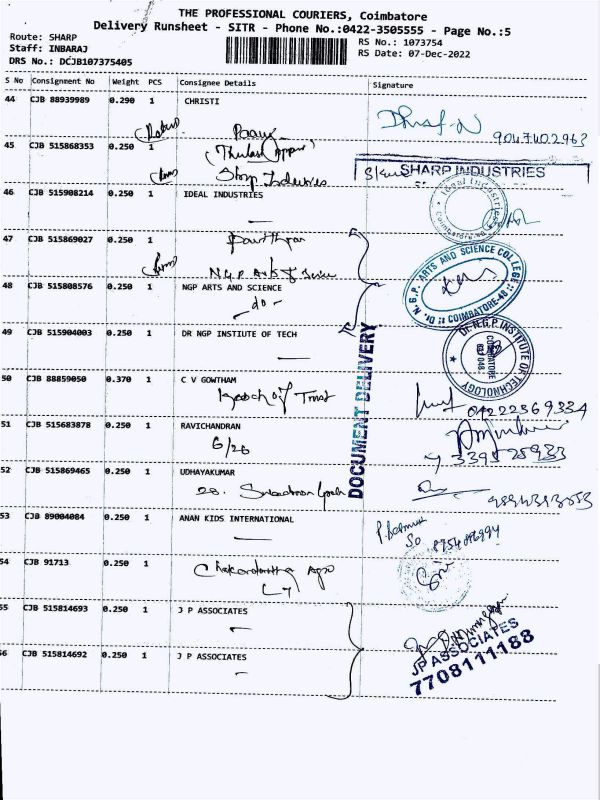 THE PROFESSIONAL COURIERS, Coimbatore
Delivery Runsheet - SITR - Phone No.:0422-3505555 - Page No.:5
Route: SHARP
Staff: INBARAJ
DRS No.: DCJB107375405
RS No.: 1073754
RS Date: 07-Dec-2022
S No Consignment No Weight PCS Consignee Details Signature
44 CJB 88939989 0.290 1 CHRISTI
9047402963
45 CJB 515868353 0.250 1
Sharp Industries
SHARP INDUSTRIES
46 CJB 515908214 0.250 1 IDEAL INDUSTRIES
Ideal Industries
47 CJB 515869027 0.250 1
N.G.P Arts & Science
48 CJB 515808576 0.250 1 NGP ARTS AND SCIENCE
- do -
Dr. N.G.P. ARTS AND SCIENCE COLLEGE
COIMBATORE-48
49 CJB 515904003 0.250 1 DR NGP INSTIUTE OF TECH
Dr. N.G.P. INSTITUTE OF TECHNOLOGY
COIMBATORE
641 048
DOCUMENT DELIVERY
50 CJB 88859050 0.370 1 C V GOWTHAM
of Trust
04222369334
51 CJB 515683878 0.250 1 RAVICHANDRAN
6/26
52 CJB 515869465 0.250 1 UDHAYAKUMAR
28.
53 CJB 89004084 0.250 1 ANAN KIDS INTERNATIONAL
54 CJB 91713 0.250 1
55 CJB 515814693 0.250 1 J P ASSOCIATES
56 CJB 515814692 0.250 1 J P ASSOCIATES
JP ASSOCIATES
7708111188